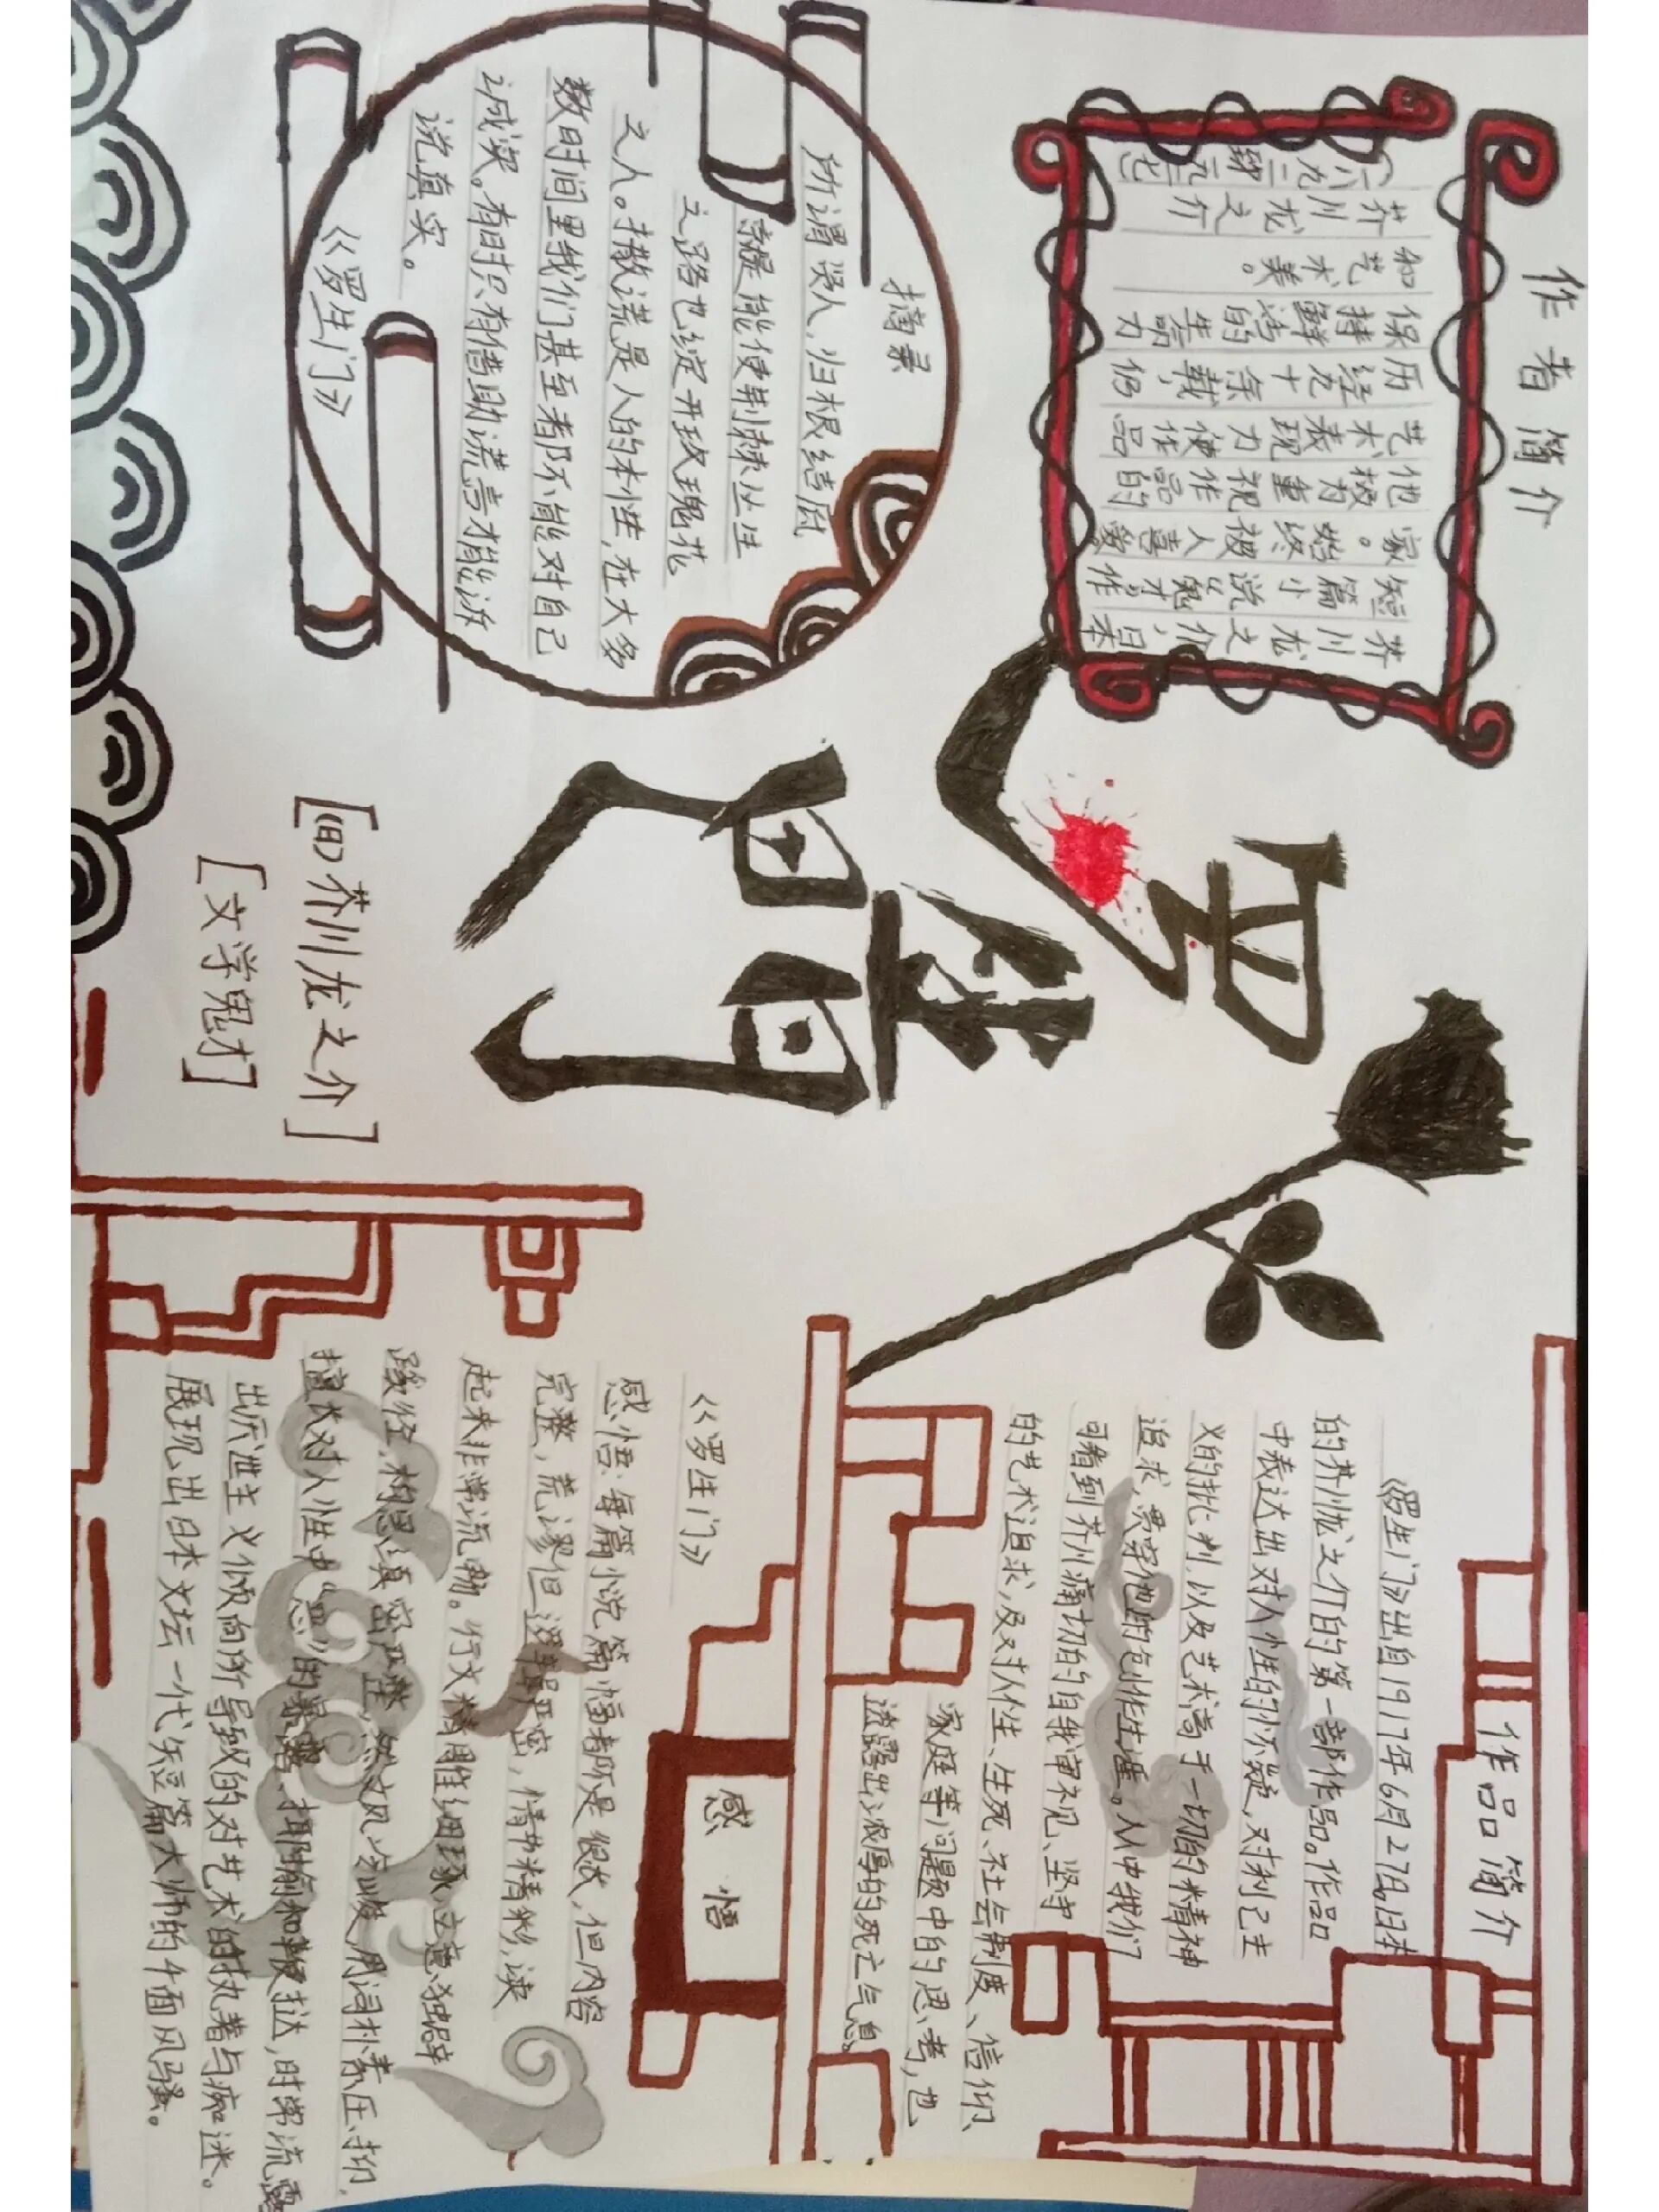 作者简介
芥川龙之介,日本
短篇小说“鬼才”作
家。始终被人喜爱。
他极为重视作品的
艺术表现力使作品
历经九十余载,仍
保持鲜活的生命力
和艺术美。
芥川龙之介
(一八九二到一九二七
摘录
所谓贤人,归根结底
就是能使荆棘丛生
之路也绽开玫瑰花
之人。撒谎是人的本性,在大多
数时间里我们甚至都不能对自己
诚实。有时只有借助谎言才能诉
说真实。
《罗生门》
罗生门
[(日)芥川龙之介]
[文学鬼才]
作品简介
《罗生门》出自1917年6月27日,日本
的芥川龙之介的第一部作品。作品
中表达出对人性的怀疑,对利己主
义的批判,以及艺术高于一切的精神
追求,贯穿他的创作生涯。从中我们
可看到芥川痛切的自我审视、坚守
的艺术追求,及对人性、生死、社会制度、信仰、
家庭等问题中的思考,也
透露出浓厚的死亡气息。
感悟
《罗生门》
感悟:每篇小说篇幅都不是很长,但内容
完整,荒谬但逻辑严密,情节精彩,读
起来非常流畅。行文精雕细琢,立意独辟
蹊径,构思缜密严整,然文风冷峻,用词朴素压抑,
擅长对人性中“恶”的暴露、揶揄和鞭挞,时常流露
出厌世主义倾向所导致的对艺术的执着与痴迷。
展现出日本文坛一代短篇大师的个面风骚。